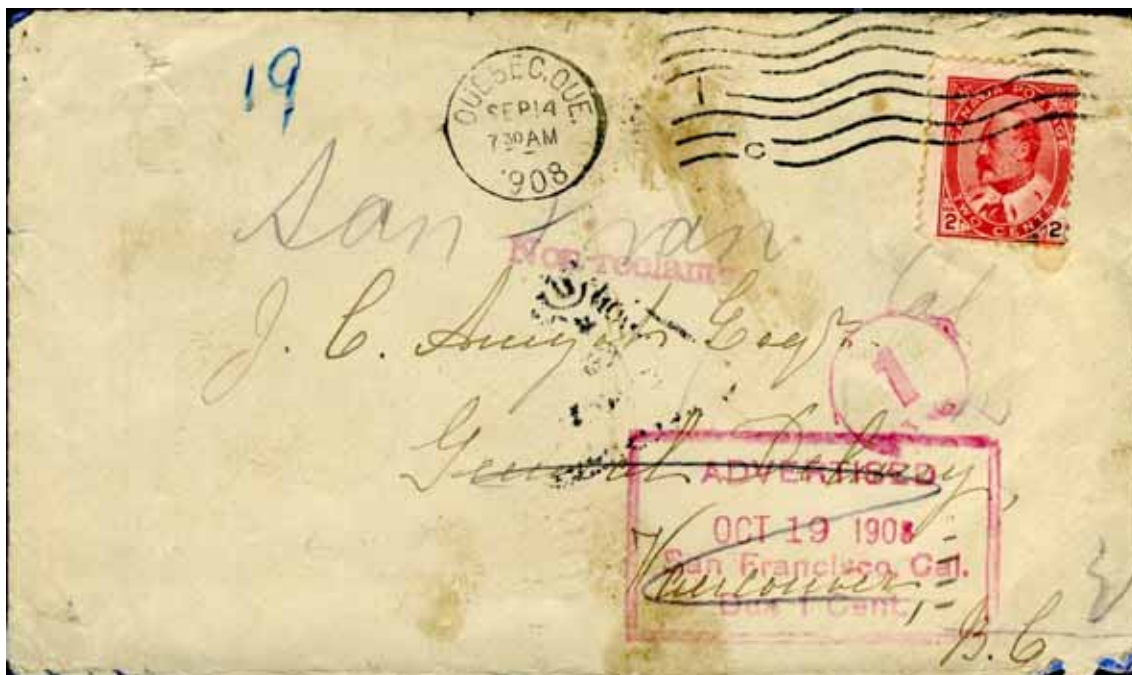 19
QUEBEC, QUE.
SEP 14
7 30 AM
1908
C
CANADA POSTAGE
2 TWO CENTS 2
San Fran
Cal
Non-reclamé
J. C. Esqr.
1
General Delivery,
ADVERTISED
OCT 19 1908
San Francisco, Cal.
Due 1 Cent.
Vancouver,
B.C.